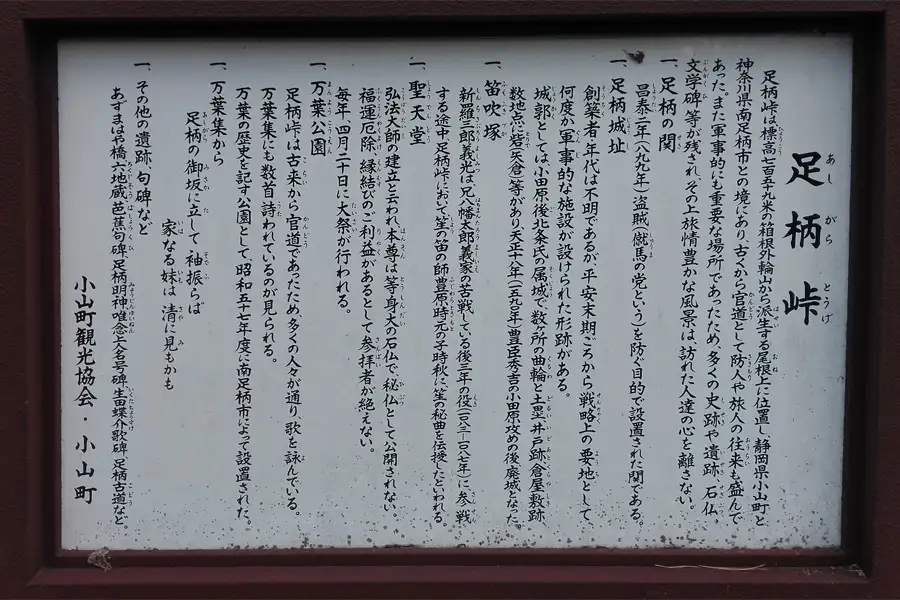 足柄峠
足柄峠は標高七百五十九米の箱根外輪山から派生する尾根上に位置し、静岡県小山町と
神奈川県南足柄市との境にあり、古くから官道として防人や旅人の往来も盛んで
あった。また軍事的にも重要な場所であったため、多くの史跡や遺跡、石仏、
文学碑等が残され、その上旅情豊かな風景は、訪れた人達の心を離さない。
一、足柄の関
昌泰二年(八九九年)盗賊(僦馬の党という)を防ぐ目的で設置された関である。
一、足柄城址
創築者、年代は不明であるが、平安末期ごろから戦略上の要地として
何度か軍事的な施設が設けられた形跡がある。
城郭としては、小田原後北条氏の属城で、数ヶ所の曲輪と土塁、井戸跡、倉屋敷跡、
数地点に砦(矢倉)等があり、天正十八年(一五九〇年)豊臣秀吉の小田原攻めの後廃城となった。
一、笛吹塚
新羅三郎義光は兄八幡太郎義家の苦戦している後三年の役(一〇八三〜一〇八七年)に参戦
する途中、足柄峠において笙の笛の師豊原時元の子時秋に笙の秘曲を伝授したといわれる。
一、聖天堂
弘法大師の建立と云われ、本尊は等身大の石仏で、秘仏として公開されない。
福運厄除、縁結びのご利益があるとして参拝者が絶えない。
毎年四月二十日に大祭が行われる。
一、万葉公園
足柄峠は古来から官道であったため、多くの人々が通り、歌を詠んでいる。
万葉集にも数首詩われているのが見られる。
万葉の歴史を記す公園として、昭和五十七年度に南足柄市によって設置された。
一、万葉集から
足柄の御坂に立して袖振らば
家なる妹は清に見もかも
一、その他の遺跡、句碑など
あずまはや橋、六地蔵、芭蕉句碑、足柄明神、唯念上人名号碑、生田蝶介歌碑、足柄古道など。
小山町観光協会・小山町